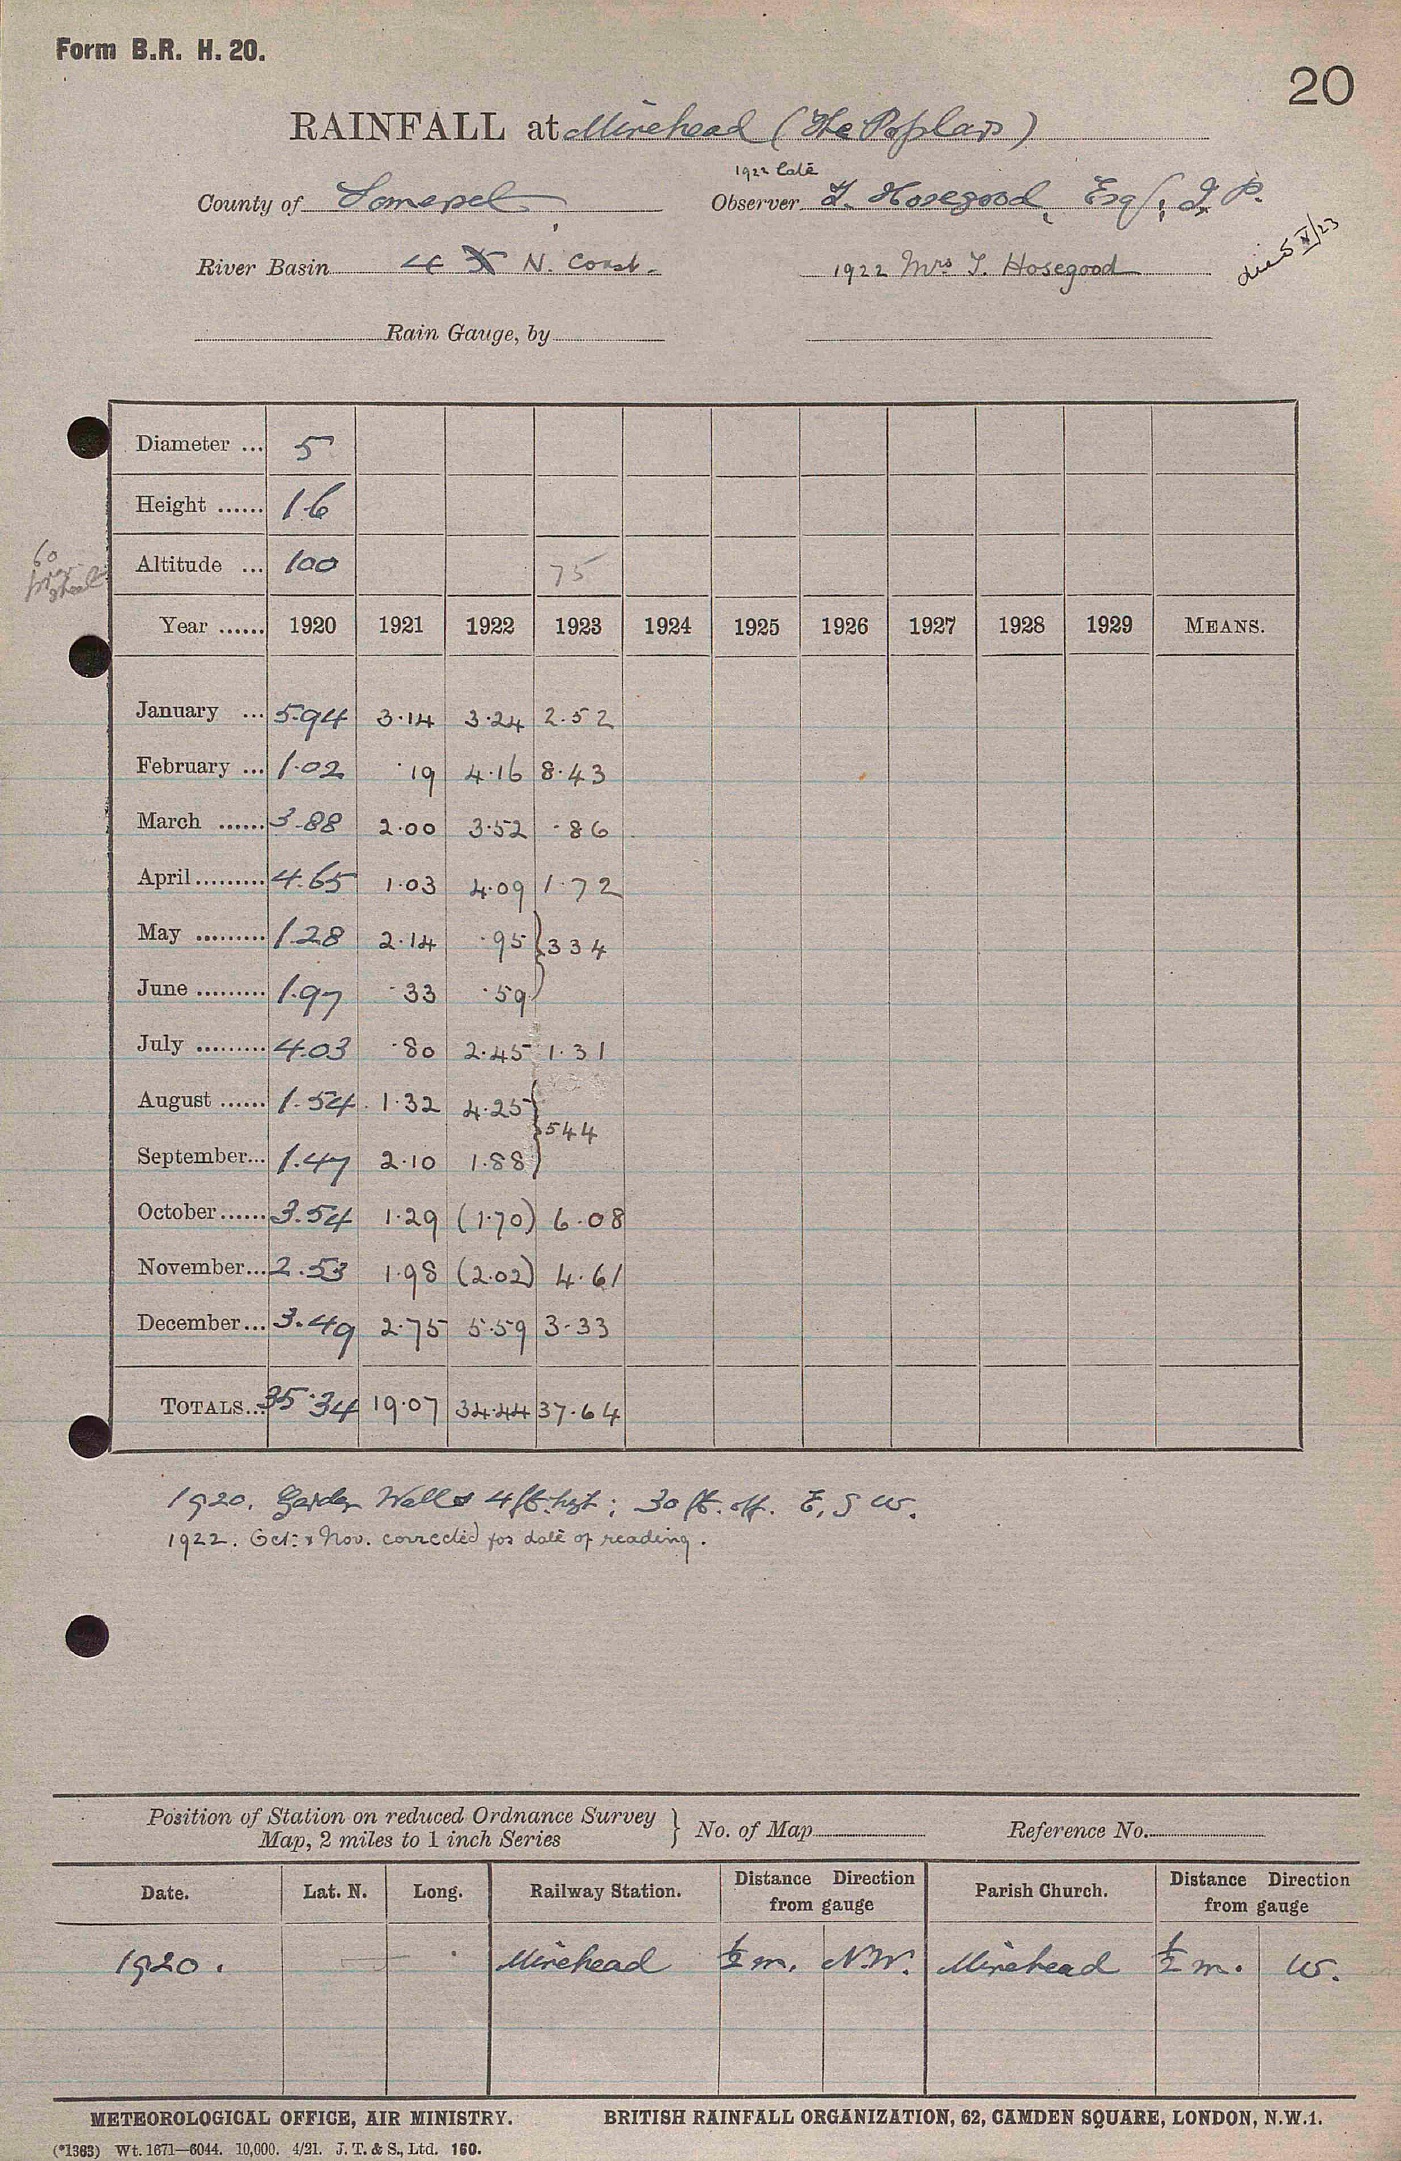 Form B.R. H. 20.
20
RAINFALL at Minehead (The Poplars)
1922 late
County of Somerset Observer T. Hosegood, Esq., J.P.
River Basin 4 N. Coast. 1922 Mrs T. Hosegood
died X/23
Rain Gauge, by
Diameter ... 5
Height ...... 16
60
Altitude ... 100 75
Year ...... 1920 1921 1922 1923 1924 1925 1926 1927 1928 1929 MEANS.
January ... 5.94 3.14 3.24 2.52
February ... 1.02 .19 4.16 8.43
March ...... 3.88 2.00 3.52 .86
April ......... 4.65 1.03 4.09 1.72
May ......... 1.28 2.14 .95 } 334
June ......... 1.97 .33 .59
July ......... 4.03 .80 2.45 1.31
August ...... 1.54 1.32 4.25 } 544
September... 1.47 2.10 1.88
October ...... 3.54 1.29 (1.70) 6.08
November... 2.53 1.98 (2.02) 4.61
December ... 3.49 2.75 5.59 3.33
TOTALS... 35.34 19.07 34.44 37.64
1920. Garden Walls 4 ft. hgt; 30 ft. off. E, S W.
1922. Oct: & Nov. corrected for date of reading.
Position of Station on reduced Ordnance Survey
Map, 2 miles to 1 inch Series } No. of Map Reference No.
Date. Lat. N. Long. Railway Station. Distance Direction from gauge Parish Church. Distance Direction from gauge
1920. Minehead ½ m. N.W. Minehead ½ m. W.
METEOROLOGICAL OFFICE, AIR MINISTRY. BRITISH RAINFALL ORGANIZATION, 62, CAMDEN SQUARE, LONDON, N.W.1.
(*1383) Wt. 1671—6044. 10,000. 4/21. J. T. & S., Ltd. 160.